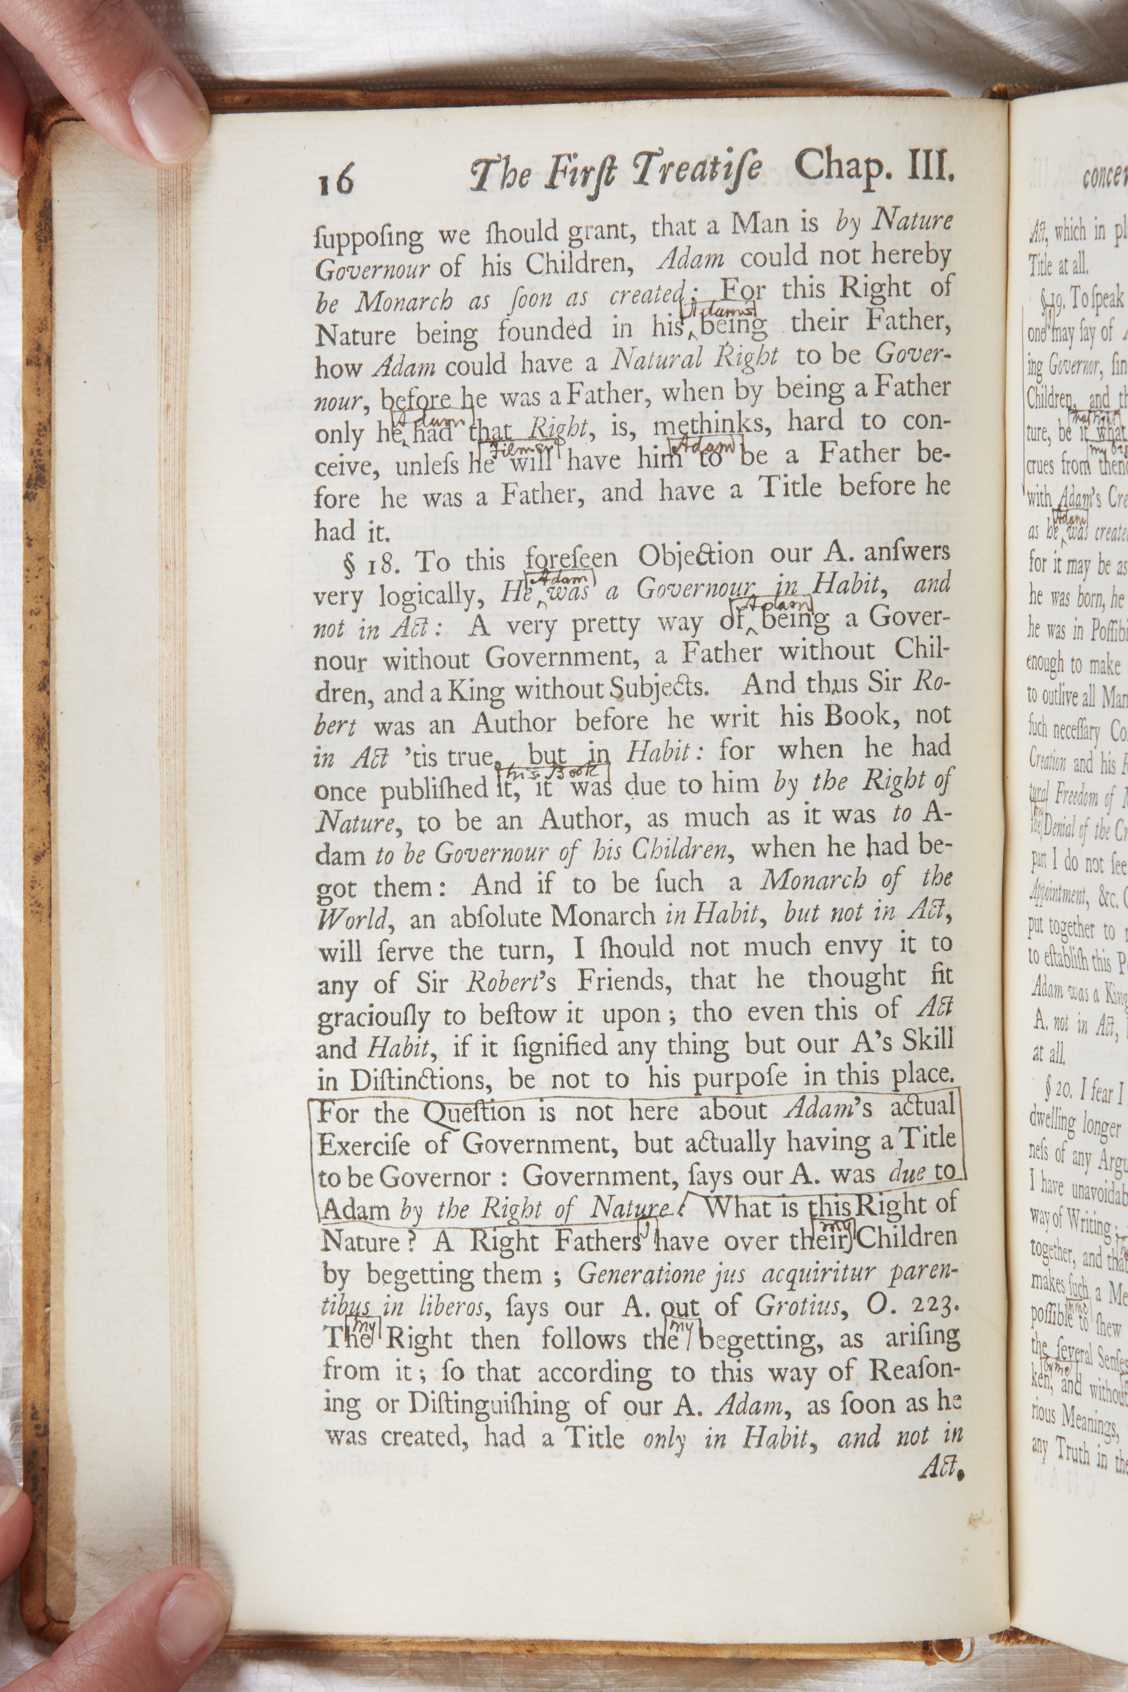 16 The Firſt Treatiſe Chap. III.
ſuppoſing we ſhould grant, that a Man is by Nature
Governour of his Children, Adam could not hereby
be Monarch as ſoon as created: For this Right of
Adams
Nature being founded in his being their Father,
how Adam could have a Natural Right to be Gover-
nour, before he was a Father, when by being a Father
Adam
only he had that Right, is, methinks, hard to con-
Filmer Adam
ceive, unleſs he will have him to be a Father be-
fore he was a Father, and have a Title before he
had it.
§ 18. To this foreſeen Objection our A. anſwers
Adam
very logically, He was a Governour in Habit, and
Adam
not in Act: A very pretty way of being a Gover-
nour without Government, a Father without Chil-
dren, and a King without Subjects. And thus Sir Ro-
bert was an Author before he writ his Book, not
in Act 'tis true, but in Habit: for when he had
his Book
once publiſhed it, it was due to him by the Right of
Nature, to be an Author, as much as it was to A-
dam to be Governour of his Children, when he had be-
got them: And if to be ſuch a Monarch of the
World, an abſolute Monarch in Habit, but not in Act,
will ſerve the turn, I ſhould not much envy it to
any of Sir Robert's Friends, that he thought fit
graciouſly to beſtow it upon; tho even this of Act
and Habit, if it ſignified any thing but our A's Skill
in Diſtinctions, be not to his purpoſe in this place.
For the Queſtion is not here about Adam's actual
Exerciſe of Government, but actually having a Title
to be Governor: Government, ſays our A. was due to
Adam by the Right of Nature. What is this Right of
I my
Nature? A Right Fathers have over their Children
by begetting them; Generatione jus acquiritur paren-
tibus in liberos, ſays our A. out of Grotius, O. 223.
my my
The Right then follows the begetting, as ariſing
from it; ſo that according to this way of Reaſon-
ing or Diſtinguiſhing of our A. Adam, as ſoon as he
was created, had a Title only in Habit, and not in
Act.
Act, which in
Title at all.
§ 19. To ſpeak
one may ſay of
ing Governor,
Children, and
that right
ture, be it what
my
crues from
with Adam's
Adam
as he was created
for it may be as
he was born, he
he was in
enough to make
to outlive all
ſuch neceſſary
Creation and his
Freedom of
Denial of the
part I do not ſee
Appointment, &c.
put together to
to eſtabliſh this
Adam was a King
A. not in Act,
at all.
§ 20. I fear I
dwelling longer
neſs of any
I have
way of Writing
together, and that
makes ſuch a
poſſible to ſhew
the ſeveral
and without
rious Meanings,
any Truth in